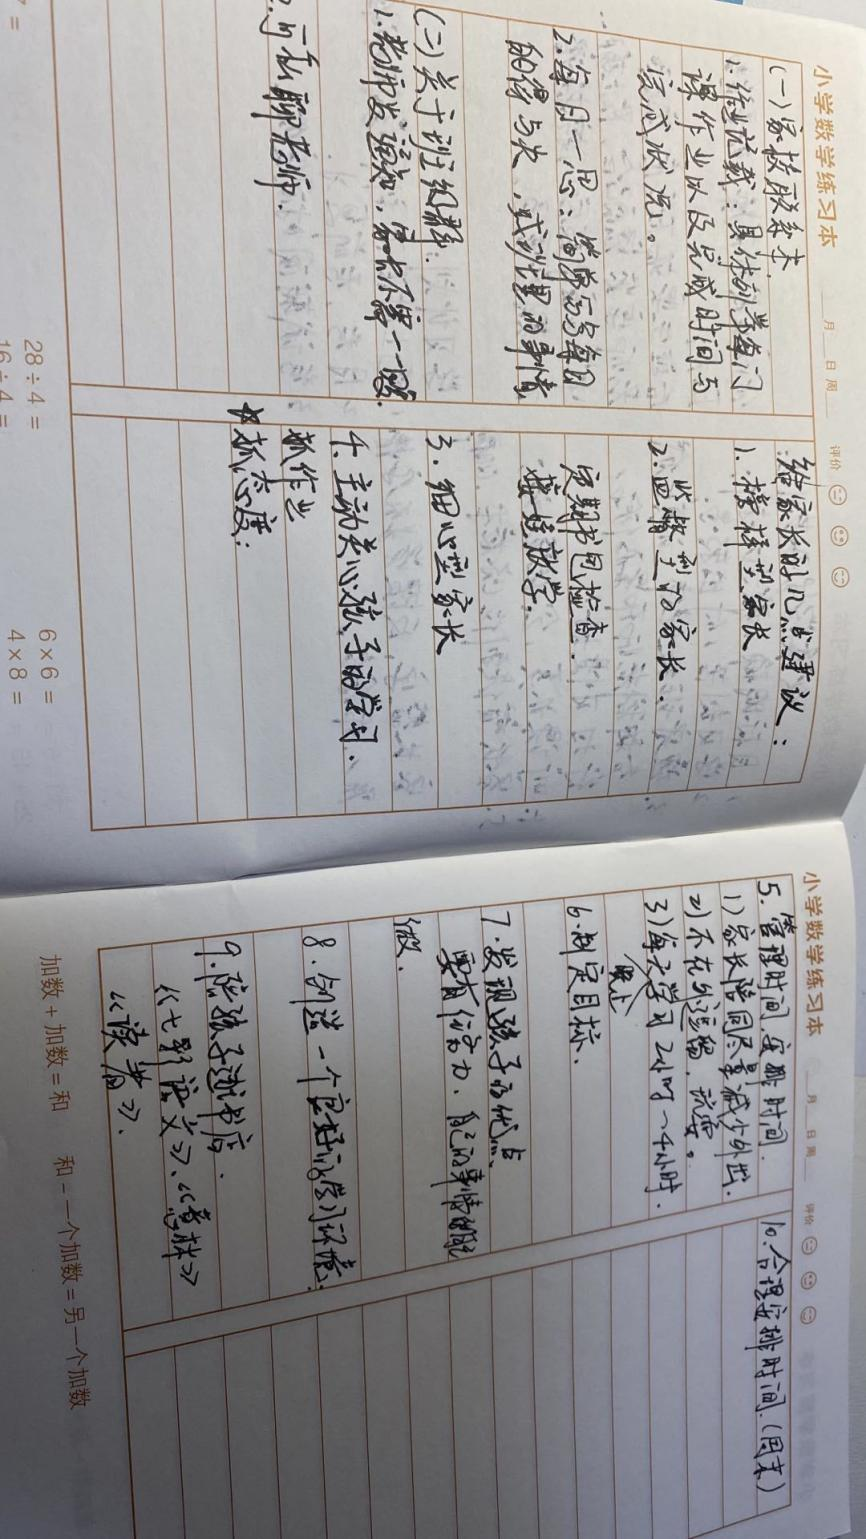 小学数学练习本
月 日 周
评价
(一)家校联系本
1. 作业记载:具体到每门
课作业以及完成时间与
完成状况。
2. 每日一思:简单写写每日
的得与失,或
的事情
(二)关于班级群:
1. 老师发通知,家长不需一一回复.
2. 可私聊老师.
给家长的几点建议:
1. 榜样型家长
2. 监督型的家长.
定期书包检查.
接送放学.
3. 细心型家长
4. 主动关心孩子的学习.
抓作业
抓态度:
28÷4=
16÷4=
6×6=
4×8=
小学数学练习本
月 日 周
评价
5. 管理时间.安排时间.
1) 家长陪同尽量减少外出.
2) 不在外逗留、玩耍。
3) 每天学习2小时~4小时.
晚上
6. 制定目标.
7. 发现孩子的优点
要有行动力.自己的事情自己
做.
8. 创造一个良好的学习环境.
9. 陪孩子逛书店.
《七彩语文》、《意林》
《读者》.
10. 合理安排时间.(周末)
加数+加数=和
和-一个加数=另一个加数